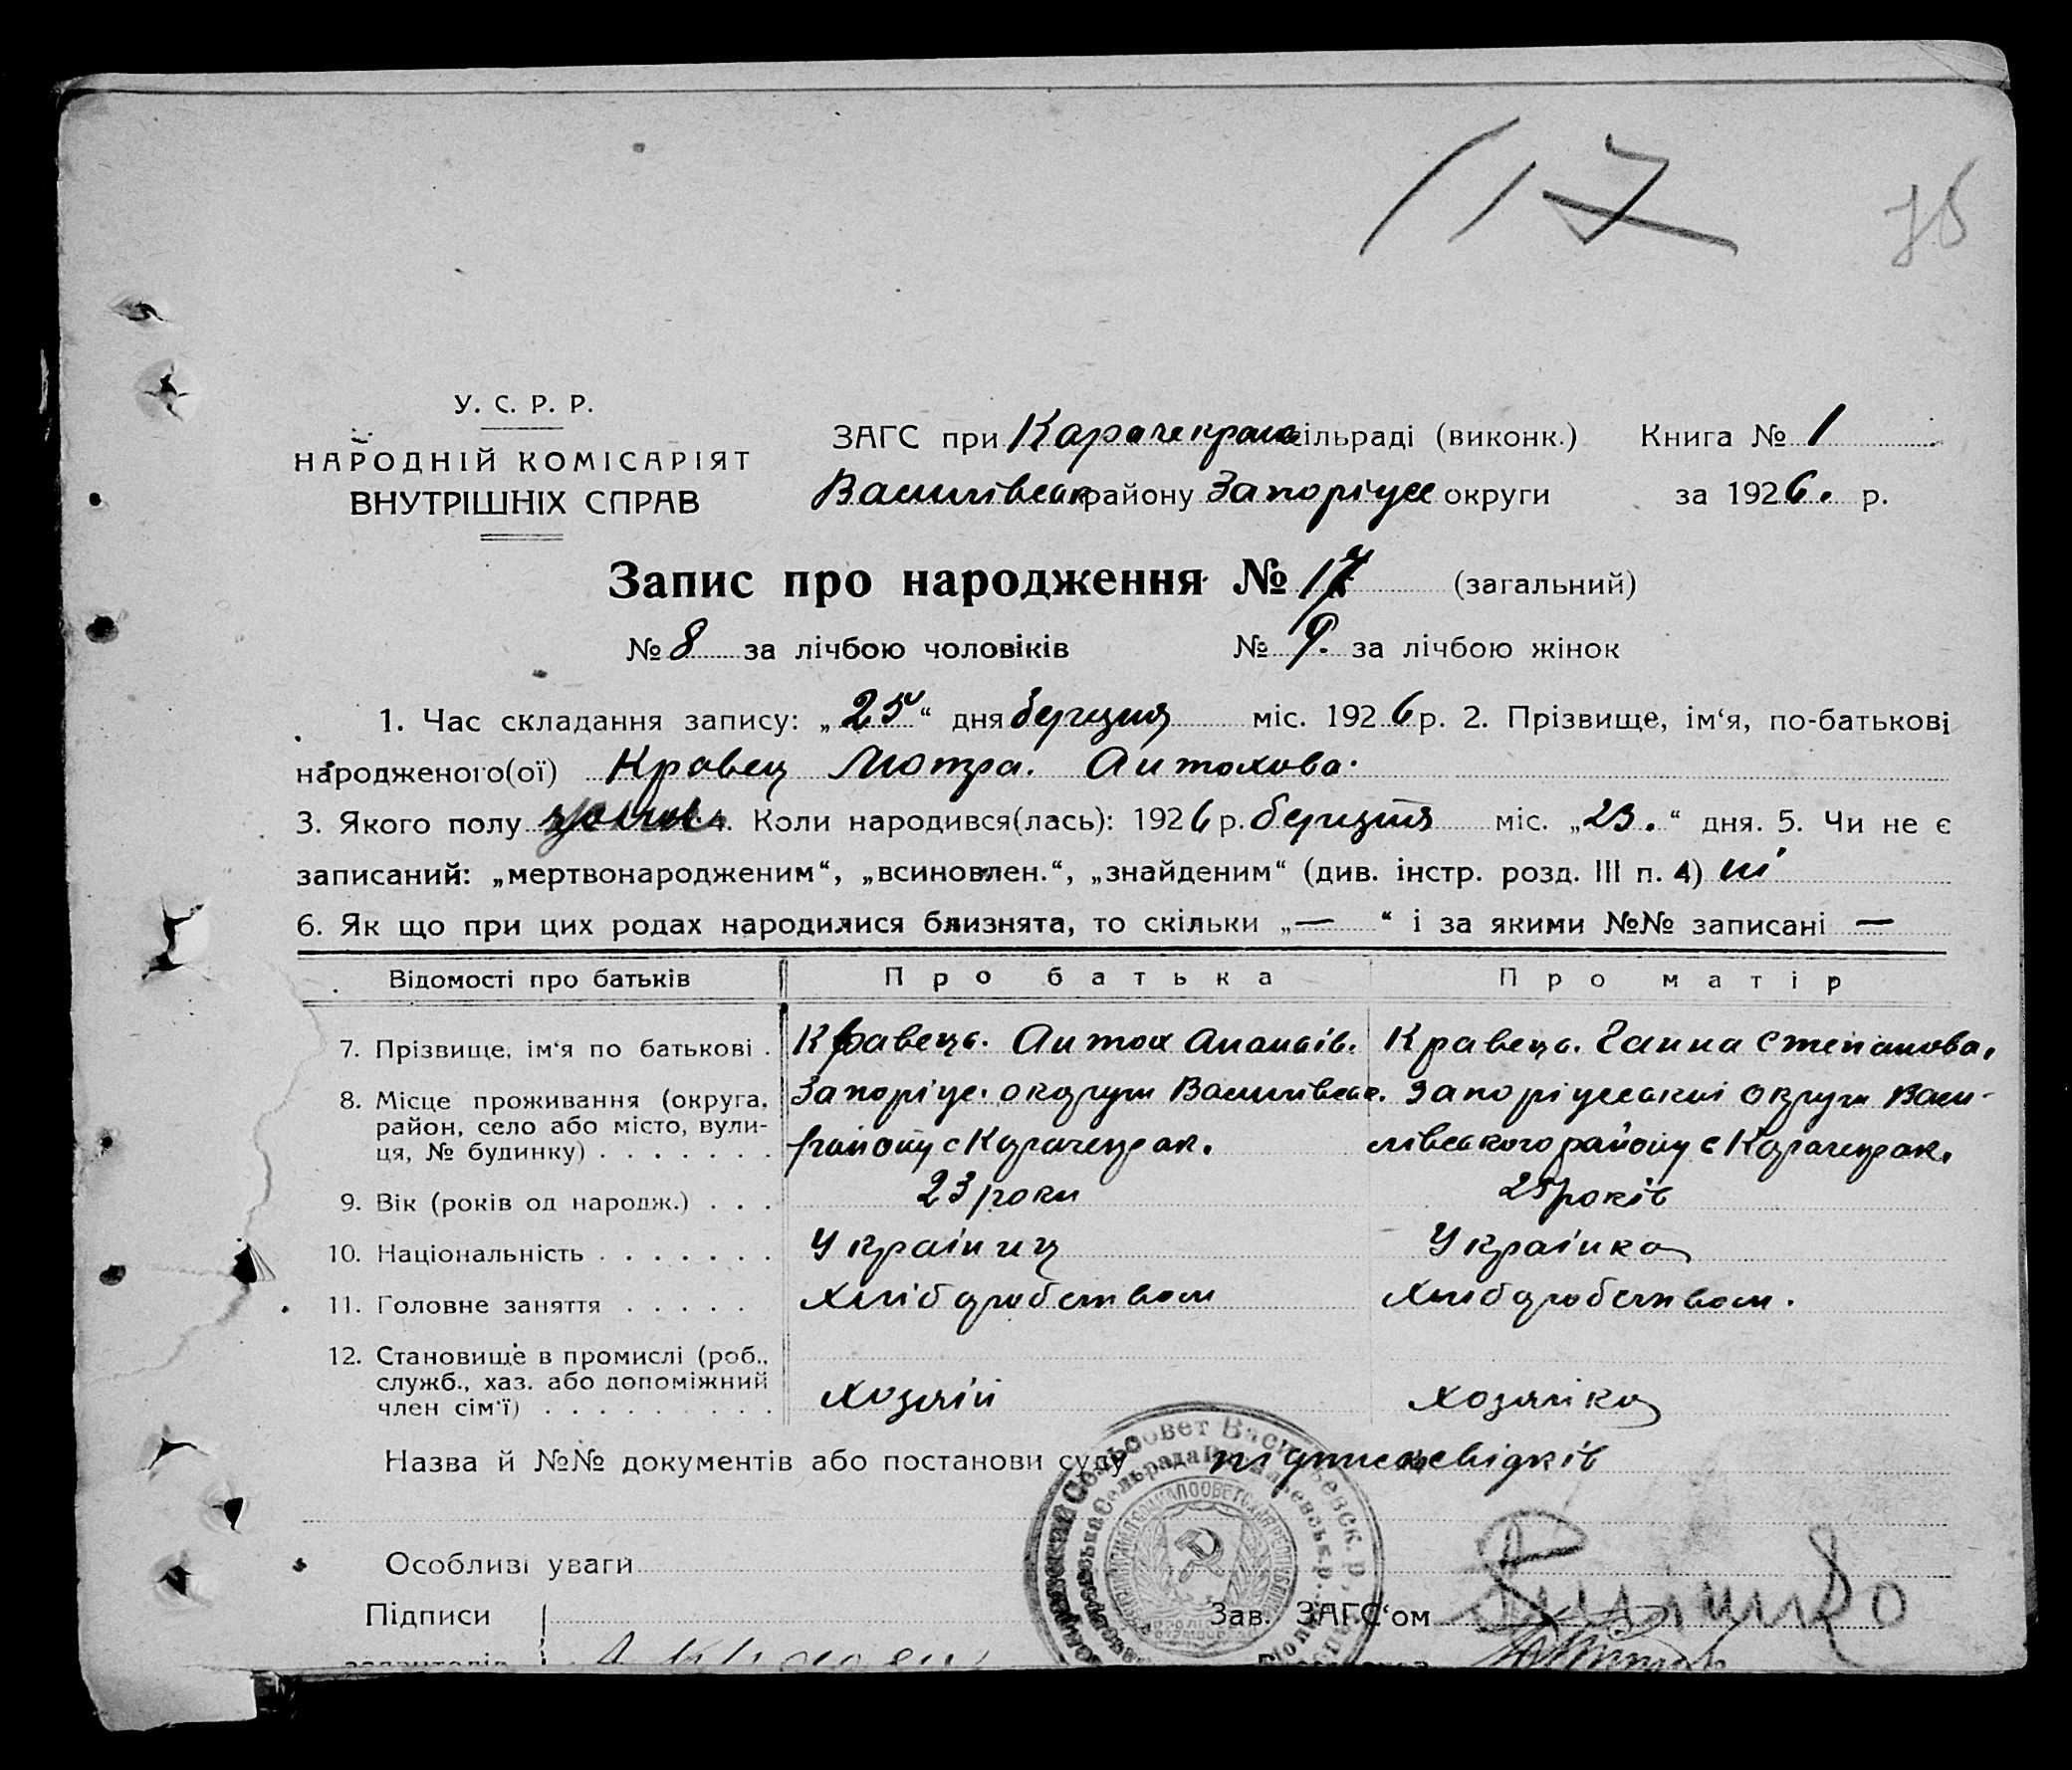 117 76
У. С. Р. Р.
НАРОДНІЙ КОМІСАРІЯТ
ВНУТРІШНІХ СПРАВ
ЗАГС при Карачекрак сільраді (виконк.) Книга № 1
Василівськ району Запоріжс округи за 1926. р.
Запис про народження № 17 (загальний)
№ 8 за лічбою чоловіків № 9. за лічбою жінок
1. Час складання запису: „25“ дня березня міс. 1926 р. 2. Прізвище, ім‘я, по-батькові
народженого(ої) Кравец Мотра. Антохова.
3. Якого полу 4. Коли народився(лась): 1926 р. березня міс. „23.“ дня. 5. Чи не є
записаний: „мертвонародженим“, „всиновлен.“, „знайденим“ (див. інстр. розд. III п. 4) ні
6. Як що при цих родах народилися близнята, то скільки „—“ і за якими №№ записані —
Відомості про батьків Про батька Про матір
7. Прізвище, ім‘я по батькові . Кравець. Антох Ананіів. Кравець. Ганна Степанова.
8. Місце проживання (округа, Запоріж. округи Василівськ. Запоріжськоі округи Васи-
район, село або місто, вули- району с Карачекрак. лівського району с Карачекрак.
ця, № будинку) . . . . . . .
9. Вік (років од народж.) . . . 23 роки 25 років
10. Національність . . . . . . . Украінец Украінка
11. Головне заняття . . . . . Хліборобством Хліборобством.
12. Становище в промислі (роб.,
служб., хаз. або допоміжний
член сім‘ї) . . . . . . . . . Хозяін хозяіка
Назва й №№ документів або постанови суду підписк свідків
Особливі уваги
Підписи Зав. ЗАГС‘ом
заявителів